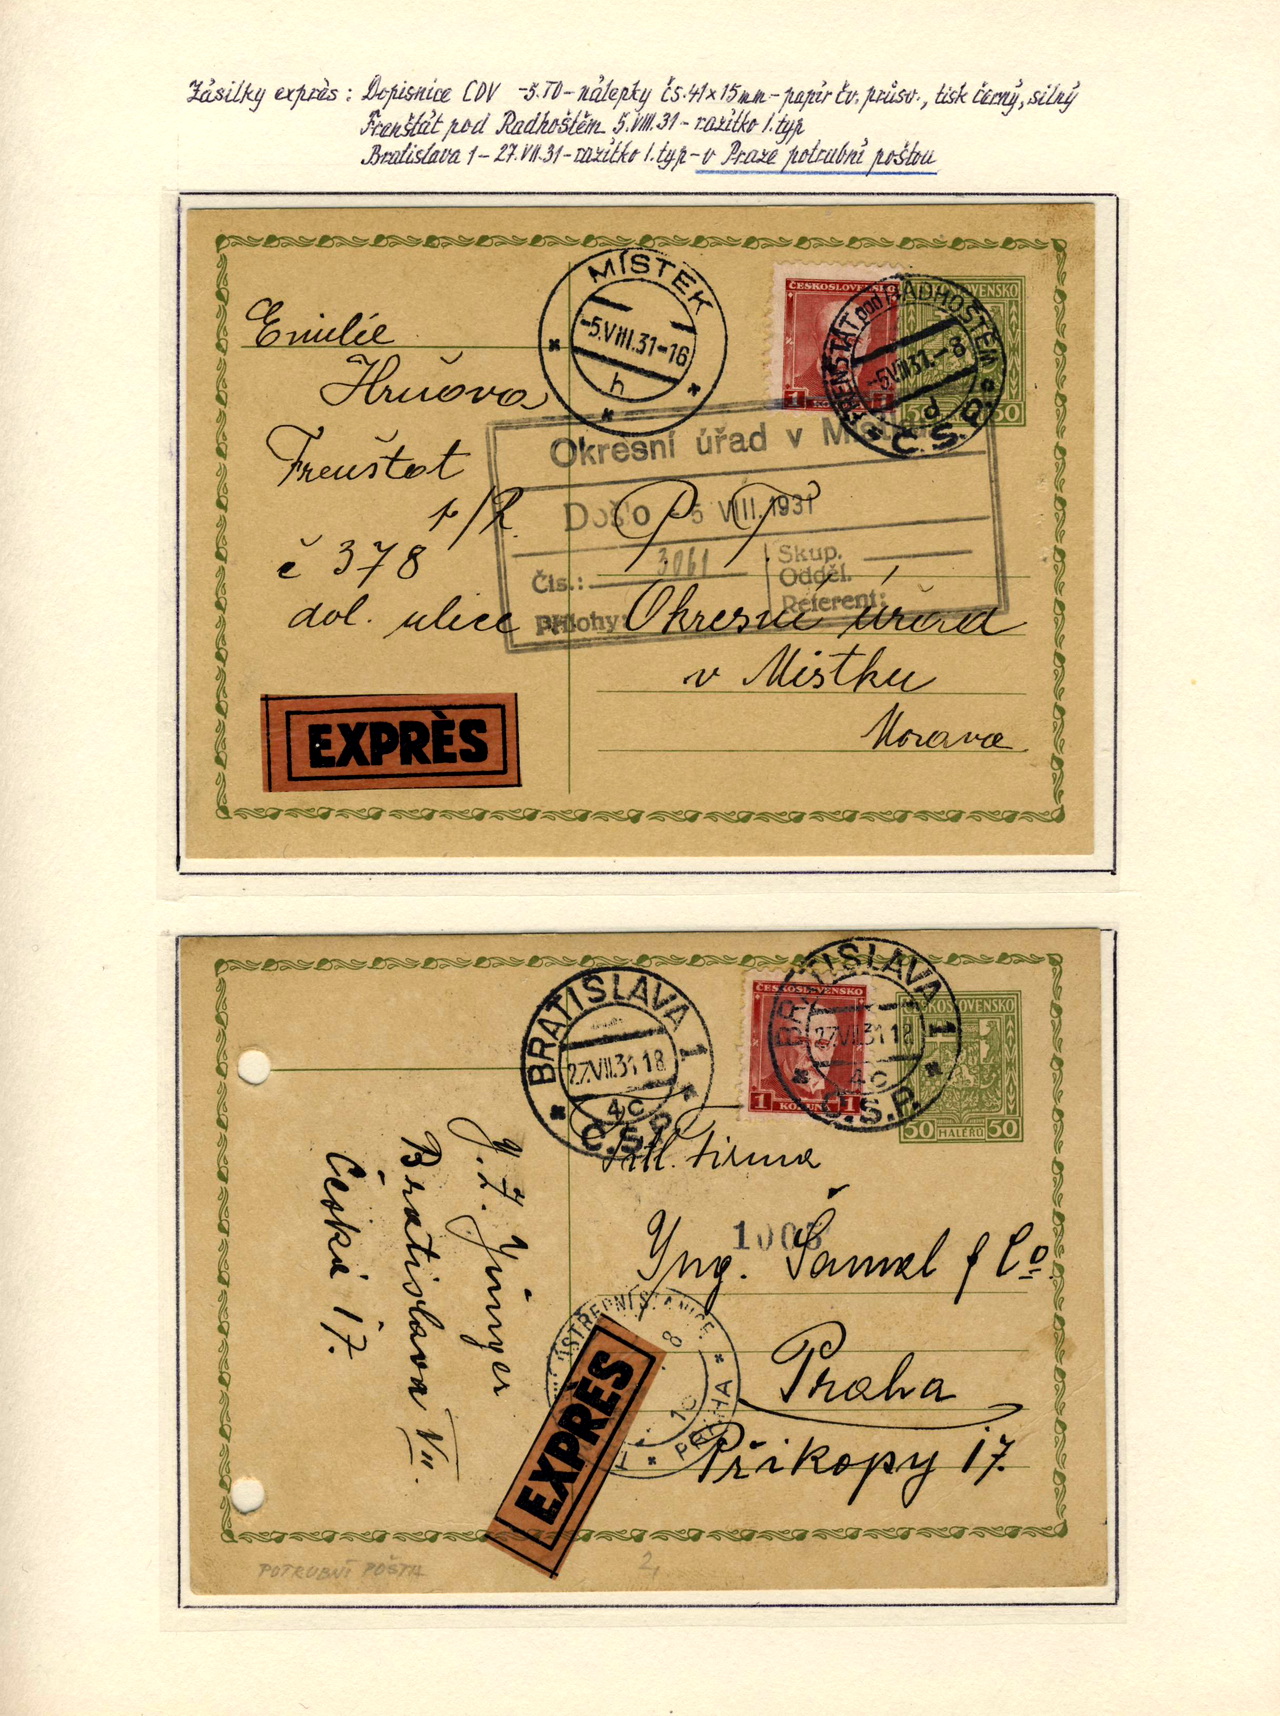 Zásilky exprès: Dopisnice CDV -5. TD - nálepky čs. 41x15mm - papír čv. průsv., tisk černý, silný
Frenštát pod Radhoštěm 5.VIII.31 - razítko 1. typ
Bratislava 1 - 27.VII.31 - razítko 1. typ - v Praze potrubní poštou
MÍSTEK
-5.VIII.31-16
h
ČESKOSLOVENSKO
1 1
FRENŠTÁT pod RADHOŠTĚM
-5.VIII.31.-8
d
Č.S.P.
50 50
Emilie
Hrušova
Frenštat
p/R.
č 378
dol. ulice
Okresní úřad v Místku
Došlo - 5 VIII. 1931
Čís.: 3061
Skup.
Odděl.
Referent:
Přílohy:
P. T.
Okresní úřad
v Místku
Morava
EXPRÈS
BRATISLAVA 1
27.VII.31 18
4c
Č.S.P.
ČESKOSLOVENSKO
1 KORUNA 1
BRATISLAVA 1
27.VII.31 18
4c
Č.S.P.
ČESKOSLOVENSKO
50 HALÉŘŮ 50
Titl. Firma
1005
Yng. Sámal & Co.
Praha
Příkopy 17.
ÚSTŘEDNÍ STANICE
8
10
PRAHA
EXPRÈS
Bratislava VII.
Česká 17.
POTRUBNÍ POŠTA
2,